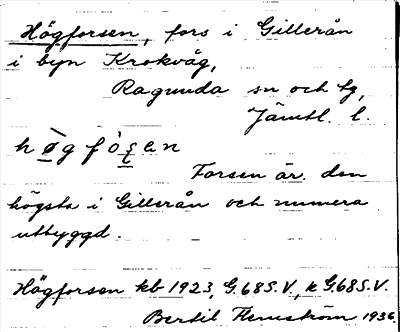 Högforsen, fors i Gillerån
i byn Krokvåg,
Ragunda sn och tg,
Jämtl. l.
högfọṣen
Forsen är den
högsta i Gillerån och numera
utbyggd.
Högforsen kb 1923, G.68S.V, k G.68S.V.
Bertil Flemström 1936.